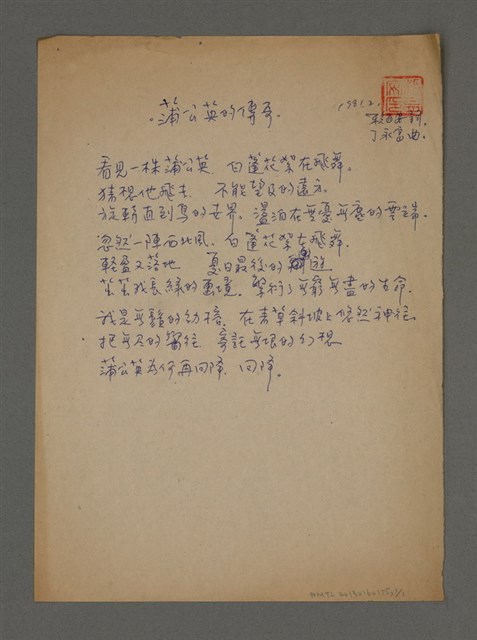 蒲公英的傳奇
1981.2.
丁永富曲.
看見一株蒲公英 白蓬花絮在飛舞。
猜想他飛去 不能望及的遠方。
旋轉直到鳥的世界。盪泊在無憂無慮的雲端。
忽然一陣西北風。白蓬花絮在飛舞。
輕盈又落地 夏日最後的遊
成長綠的墨境。擎行了無窮無盡的生命
我是無聲的幼蓓。在青草斜坡上悠然神往
把無及的嚮往 寄託無垠的幻想
蒲公英為何再回降 回降。